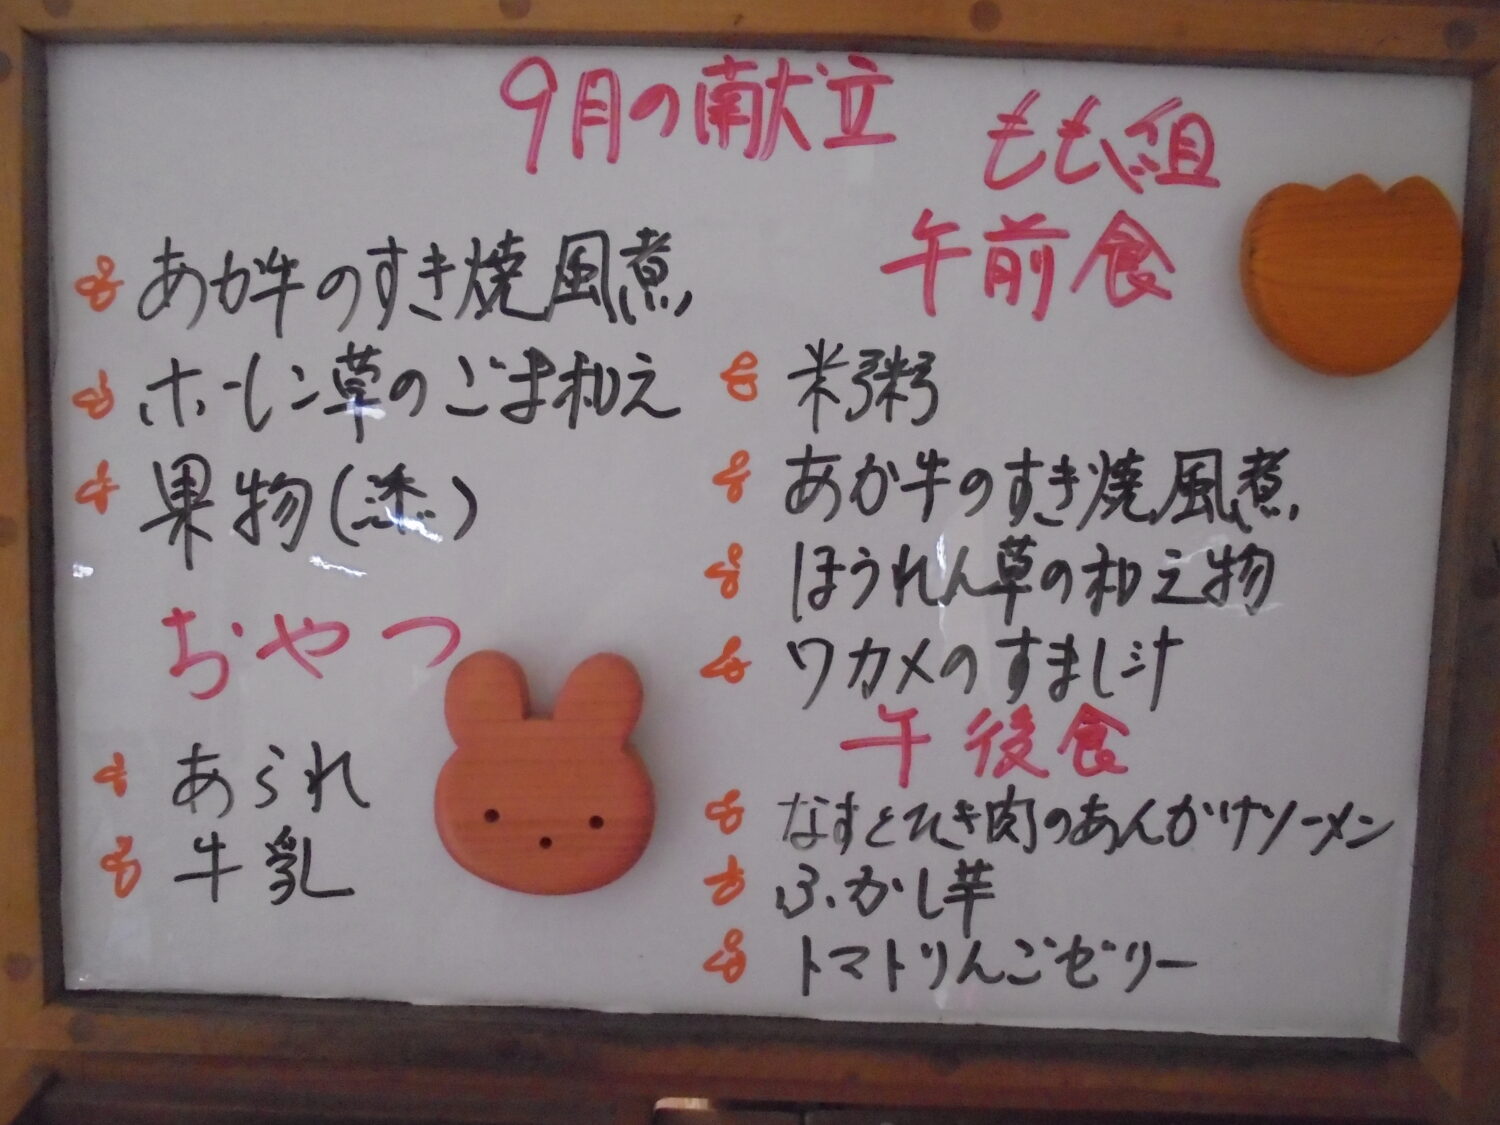 9月の献立
あか牛のすき焼風煮
ホーレン草のごま和え
果物(
おやつ
あられ
牛乳
もも組
午前食
米粥
あか牛のすき焼風煮
ほうれん草の和え物
ワカメのすまし汁
午後食
なすとひき肉のあんかけソーメン
ふかし芋
トマトりんごゼリー